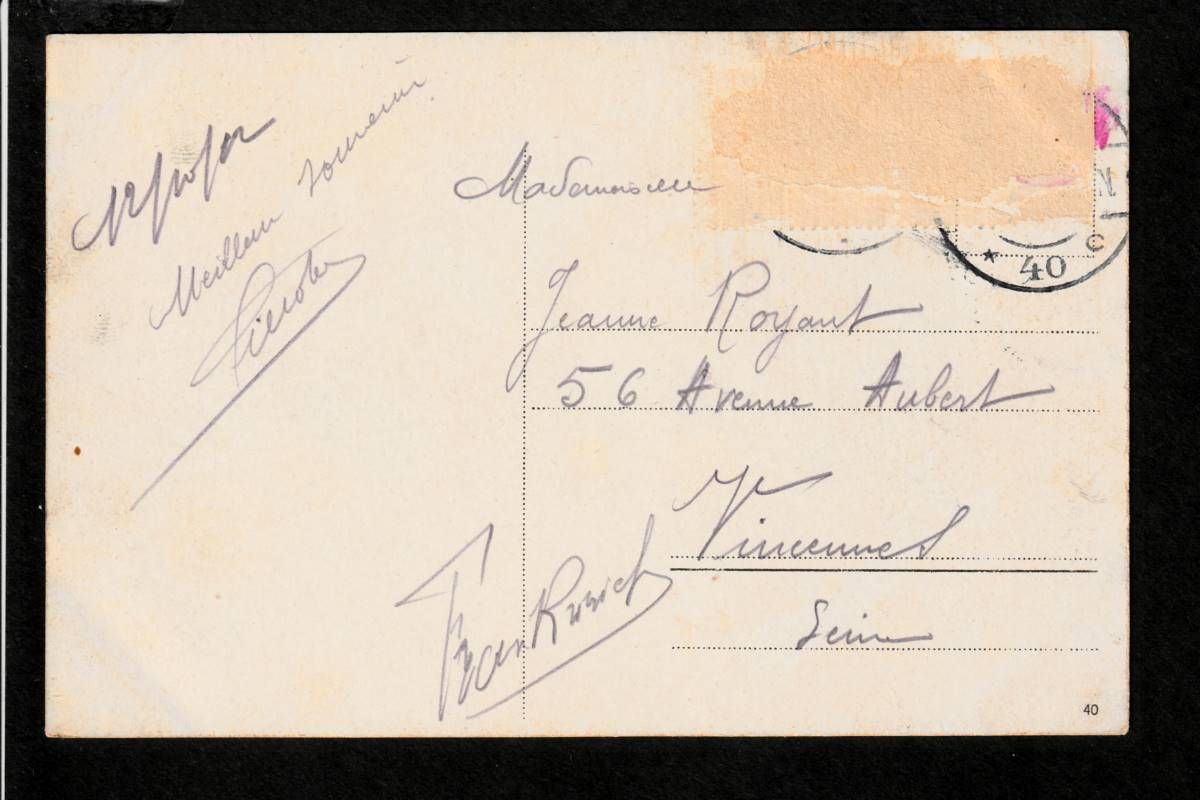 Meilleur souvenir
Mademoiselle
Jeanne Royant
56 Avenue Aubert
Vincennes
Seine
Frankreich
40
N
c
* 40